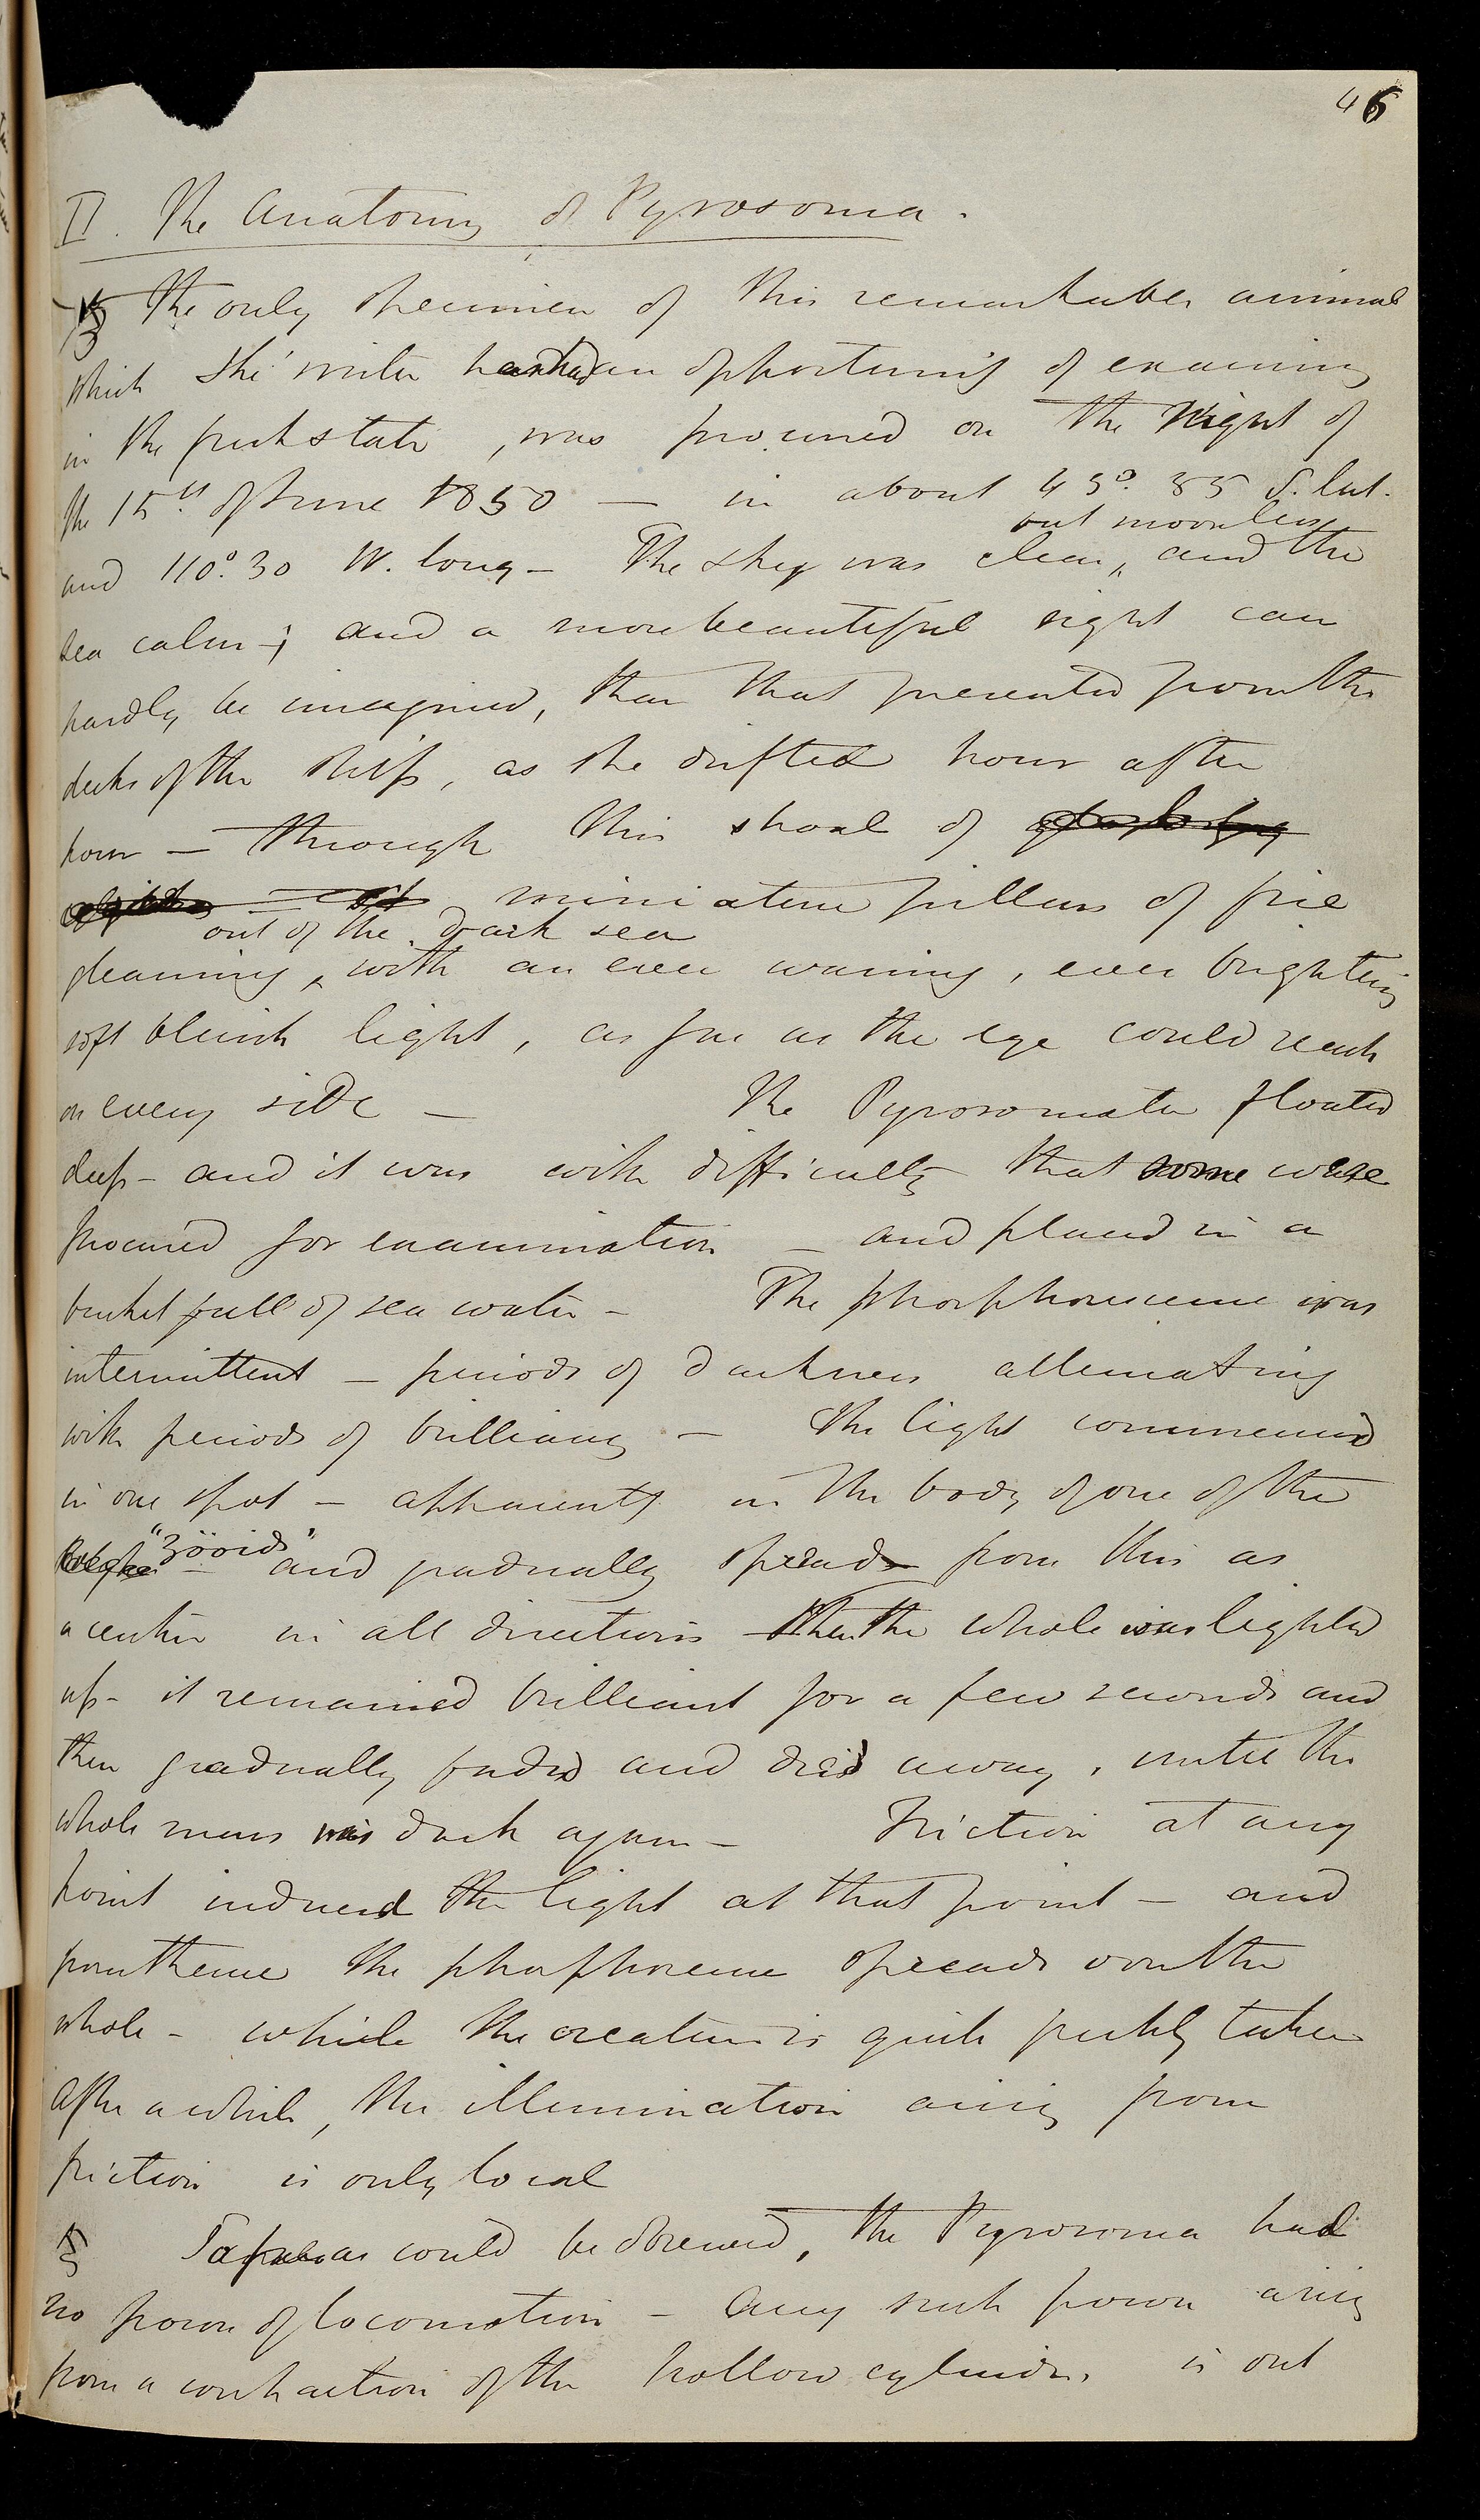 46
II. The Anatomy of Pyrosoma.
The only specimen of this remarkable animal
which the writer has had an opportunity of examining
in the fresh state, was procured on the night of
the 15th of June 1850 — in about 43°. 35 S. lat.
but moonless
and 110°. 30 W. long — The sky was clear, and the
sea calm; and a more beautiful sight can
hardly be imagined, than that presented from the
decks of the ship, as she drifted hour after
hour — through this shoal of
miniature pillars of fire
out of the dark sea
gleaming with an ever waning, ever brightening
soft bluish light, as far as the eye could reach
on every side — The Pyrosomata floated
deep — and it was with difficulty that some were
procured for examination — and placed in a
bucket full of sea water — The phosphorescence was
intermittent — periods of darkness alternating
with periods of brilliancy — The light commenced
in one spot — apparently in the body of one of the
"zöoids"
— and gradually spread from this as
a centre in all directions then the whole was lighted
up — it remained brilliant for a few seconds and
then gradually faded and died away, until the
whole mass was dark again — Friction at any
point induced the light at that point — and
from thence the phosphorescence spreads over the
whole — while the creature is quite freshly taken
After a while, the illumination arising from
friction is only local
So far as could be observed, the Pyrosoma had
no power of locomotion — Any such power arising
from a contraction of the hollow cylinder, is out